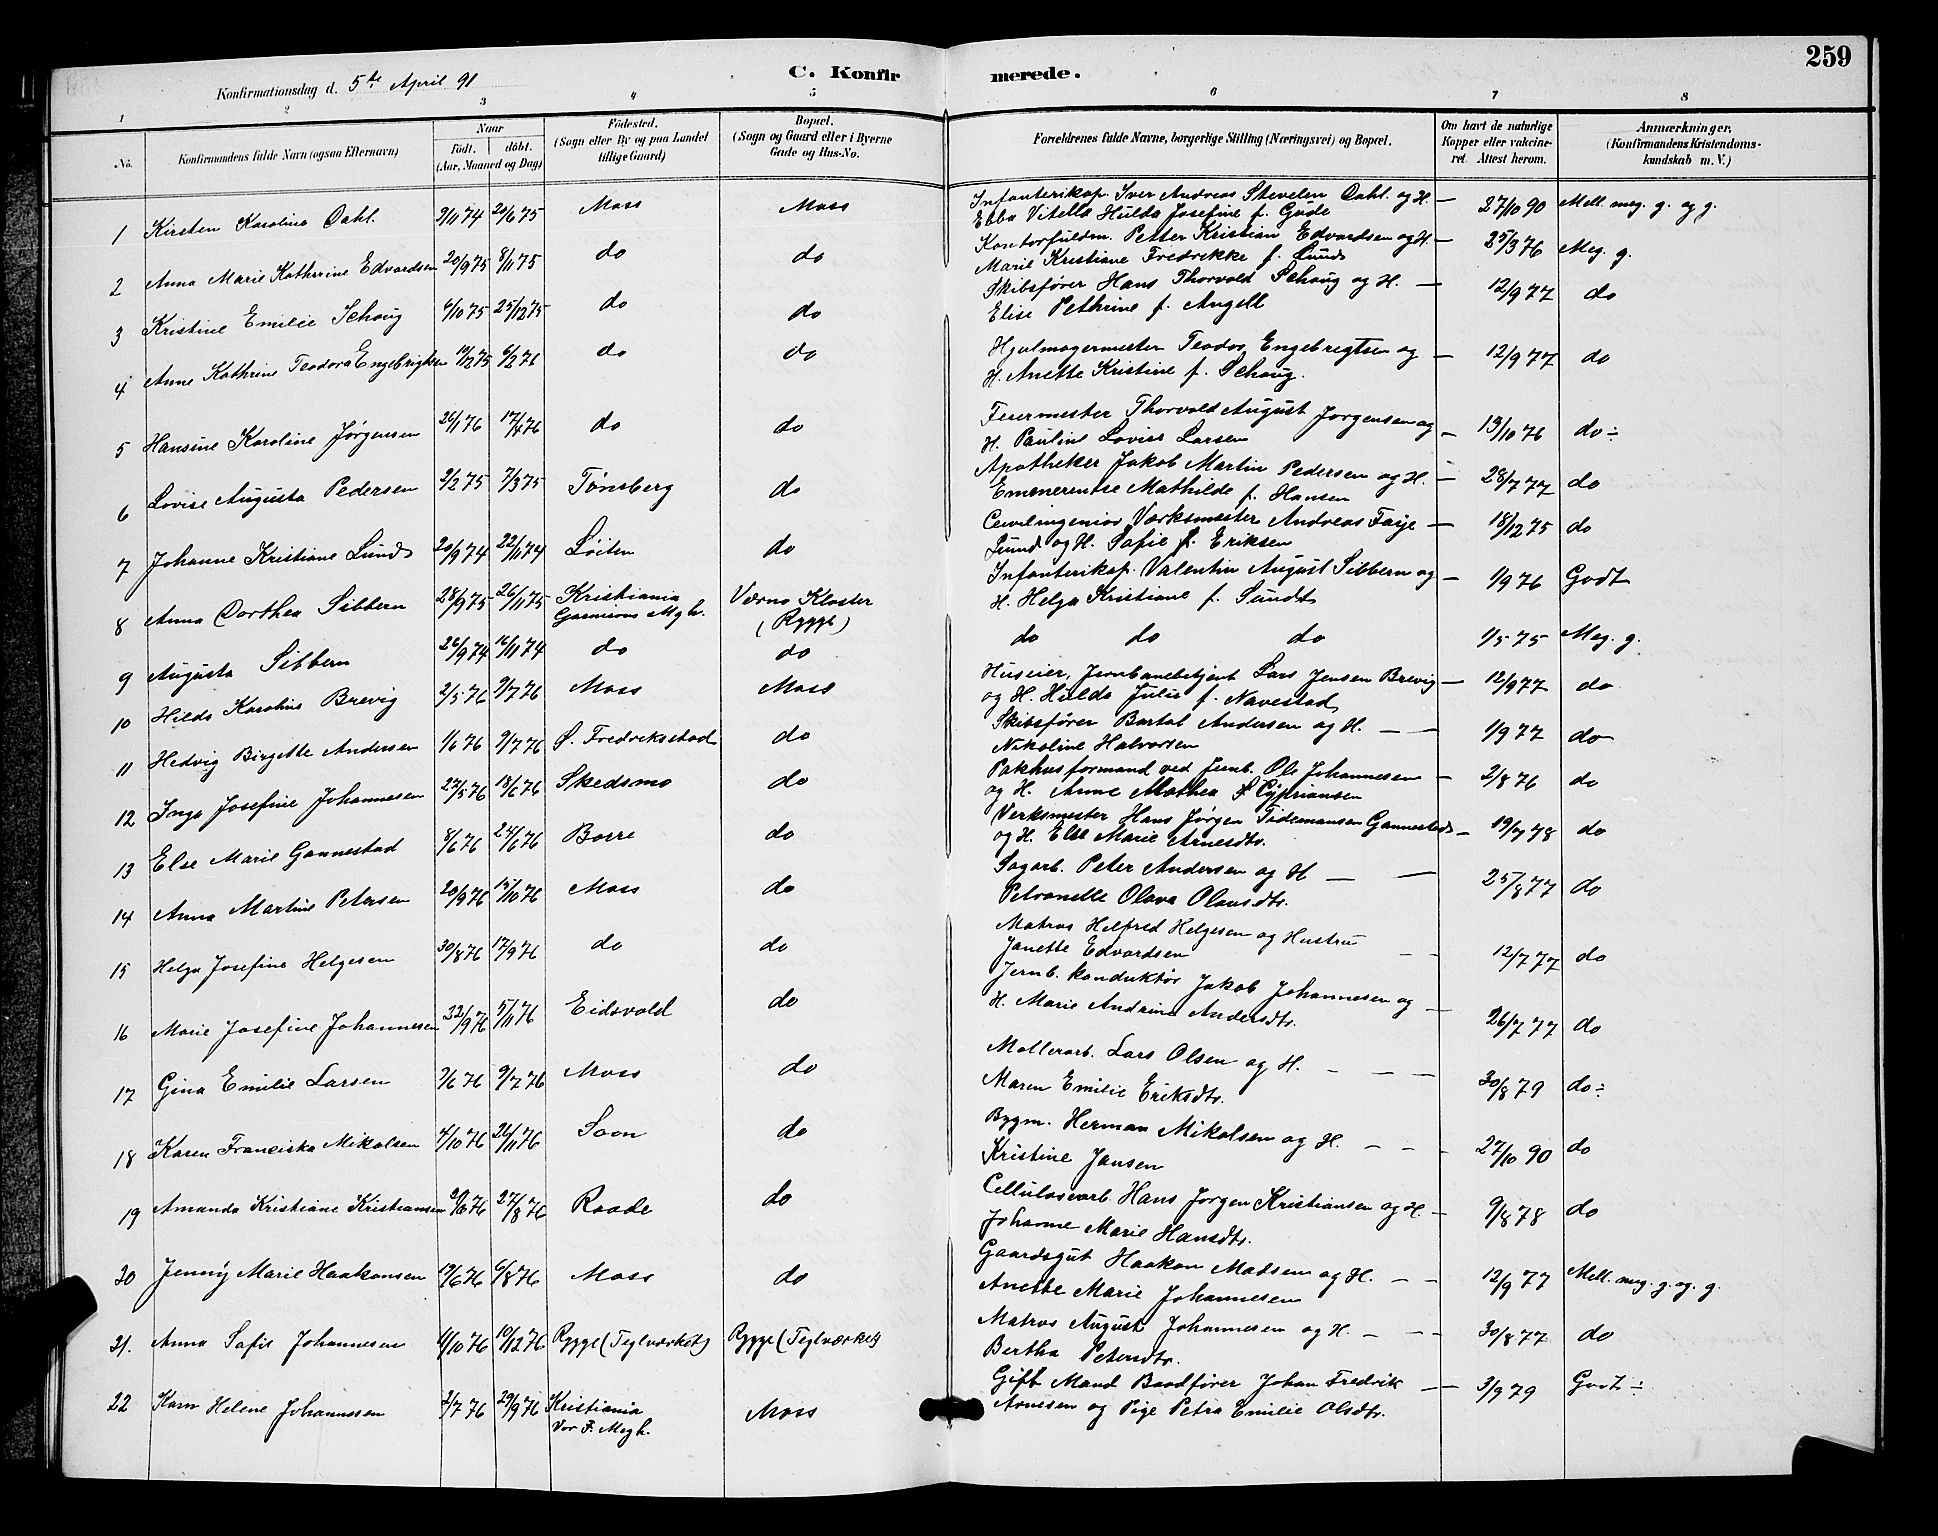 259
C. Konfirmerede.
Konfirmationsdag d. 5te April 91
1 2 3 4 5 6 7 8
No.
Konfirmandens fulde Navn (ogsaa Efternavn)
Naar
födt. döbt.
(Aar, Maaned og Dag)
Födested.
(Sogn eller By og paa Landet
tillige Gaard)
Bopæl.
(Sogn og Gaard eller i Byerne
Gade og Hus-No.
Forældrenes fulde Navne, borgerlige Stilling (Næringsvei) og Bopæl.
Om havt de naturlige
Kopper eller vakcine-
ret. Attest herom.
Anmærkninger.
(Konfirmandens Kristendoms-
kundskab m. V.)
1 Kirsten Karoline Dahl. 9/11 74 20/6 75 Moss Moss
Infanterikap. Iver Andreas Stevelin Dahl og H. —
Ebba Vitella Hulda Josefine f. Gude 27/10 90 Mell. meg. g. og g.
2 Anna Marie Kathrine Edvardsen 20/9 75 8/11 75 do do
Kontorfuldm. Petter Kristian Edvardsen og H —
Marie Kristiane Fredrikke f. Lund 25/3 76 Meg. g.
3 Kristine Emilie Schoug 6/10 75 25/12 75 do do
Skibsfører Hans Thorvald Schoug og H. —
Elise Pethrine f. Angell 12/9 77 do
4 Anne Kathrine Teodora Engebrigtsen 19/12 75 6/2 76 do do
Hjulmagermester Teodor Engebregtsen og —
H. Anette Kristine f. Schoug. 12/9 77 do
5 Hansine Karoline Jørgensen 26/1 76 17/4 76 do do
Feiermester Thorvald August Jørgensen og
H. Pauline Lovise Larsen — 13/10 76 do ÷
6 Lovise Augusta Pedersen 2/2 75 7/3 75 Tønsberg do
Apotheker Jakob Martin Pedersen og H. —
Emmerentse Mathilde f. Hansen 28/7 77 do
7 Johanne Kristiane Lund 20/9 74 22/11 74 Løiten do
Civilingeniør Værksmester Andreas Faije —
Lund og H. Sofie f. Eriksen 18/12 75 do
8 Anna Dorthea Sibbern 28/9 75 26/11 75 Kristiania Værne Kloster
Garnisons Mgh. (Rygge)
Infanterikap. Valentin August Sibbern og —
H. Helga Kristiane f. Sundt 1/9 76 Godt
9 Augusta Sibbern 26/9 74 16/11 74 do do
do do do 1/5 75 Meg. g.
10 Hilda Karoline Brevig 2/5 76 9/7 76 Moss Moss
Huseier, Jernbanebetjent Lars Jensen Brevig —
og H. Hulda Julie f. Navestad 12/9 77 do
11 Hedvig Birgette Andersen 1/6 76 9/7 76 S. Fredriksstad do
Skibsfører Bartol Andersen og H. — —
Nikoline Halvorsen 1/9 77 do
12 Inga Josefine Johannesen 27/5 76 18/6 76 Skedsmo do
Pakhusformand ved Jernb. Ole Johannesen —
og H. Anne Mathea f. Cypriansen 2/8 76 do
13 Else Marie Gannestad 8/6 76 24/6 76 Borre do
Verksmester Hans Jørgen Tidemansen Gannestad —
og H. Else Marie Arnesdtr. 19/7 78 do
14 Anna Martine Petersen 20/9 76 15/10 76 Moss do
Sagarb. Peter Andersen og H — —
Petronelle Olava Olausdtr. 25/8 77 do
15 Helga Josefine Helgesen 30/8 76 17/9 76 do do
Matros Helfred Helgesen og Hustru
Janette Edvardsen — — 12/7 77 do
16 Marie Josefine Johannesen 22/9 76 5/11 76 Eidsvold do
Jernb. konduktør Jakob Johannesen og —
H. Marie Andrine Andersdtr. 26/7 77 do
17 Gina Emilie Larsen 7/6 76 9/7 76 Moss do
Møllerarb. Lars Olsen og H. — — —
Maren Emilie Eriksdtr. 30/8 79 do ÷
18 Karen Franciska Mikalsen 4/10 76 26/11 76 Soon do
Bygm. Herman Mikalsen og H. — — —
Kristine Jansen 27/10 90 do
19 Amanda Kristiane Kristiansen 76 27/8 76 Raade do
Cellulosearb. Hans Jørgen Kristiansen og H. —
Johanne Marie Hansdtr. 9/8 78 do
20 Jenny Marie Haakonsen 17/6 76 6/8 76 Moss do
Gaardsgut Haakon Madsen og H. — —
Anette Marie Johannesen 12/9 77 Mell. meg. g. og. g.
21. Anna Sofie Johannesen 4/10 76 19/12 76 Rygge (Teglværket) Rygge (Teglværket)
Matros August Johannesen og H. — — —
Bertha Petersdtr. 30/8 77 do
22 Karn Helene Johannesen 2/7 76 29/9 76 Kristiania Moss
Vor F. Mgh.
Gift Mand Baadfører Johan Fredrik —
Arnesen og Pige Petra Emilie Olsdtr. 3/9 79 Godt ÷